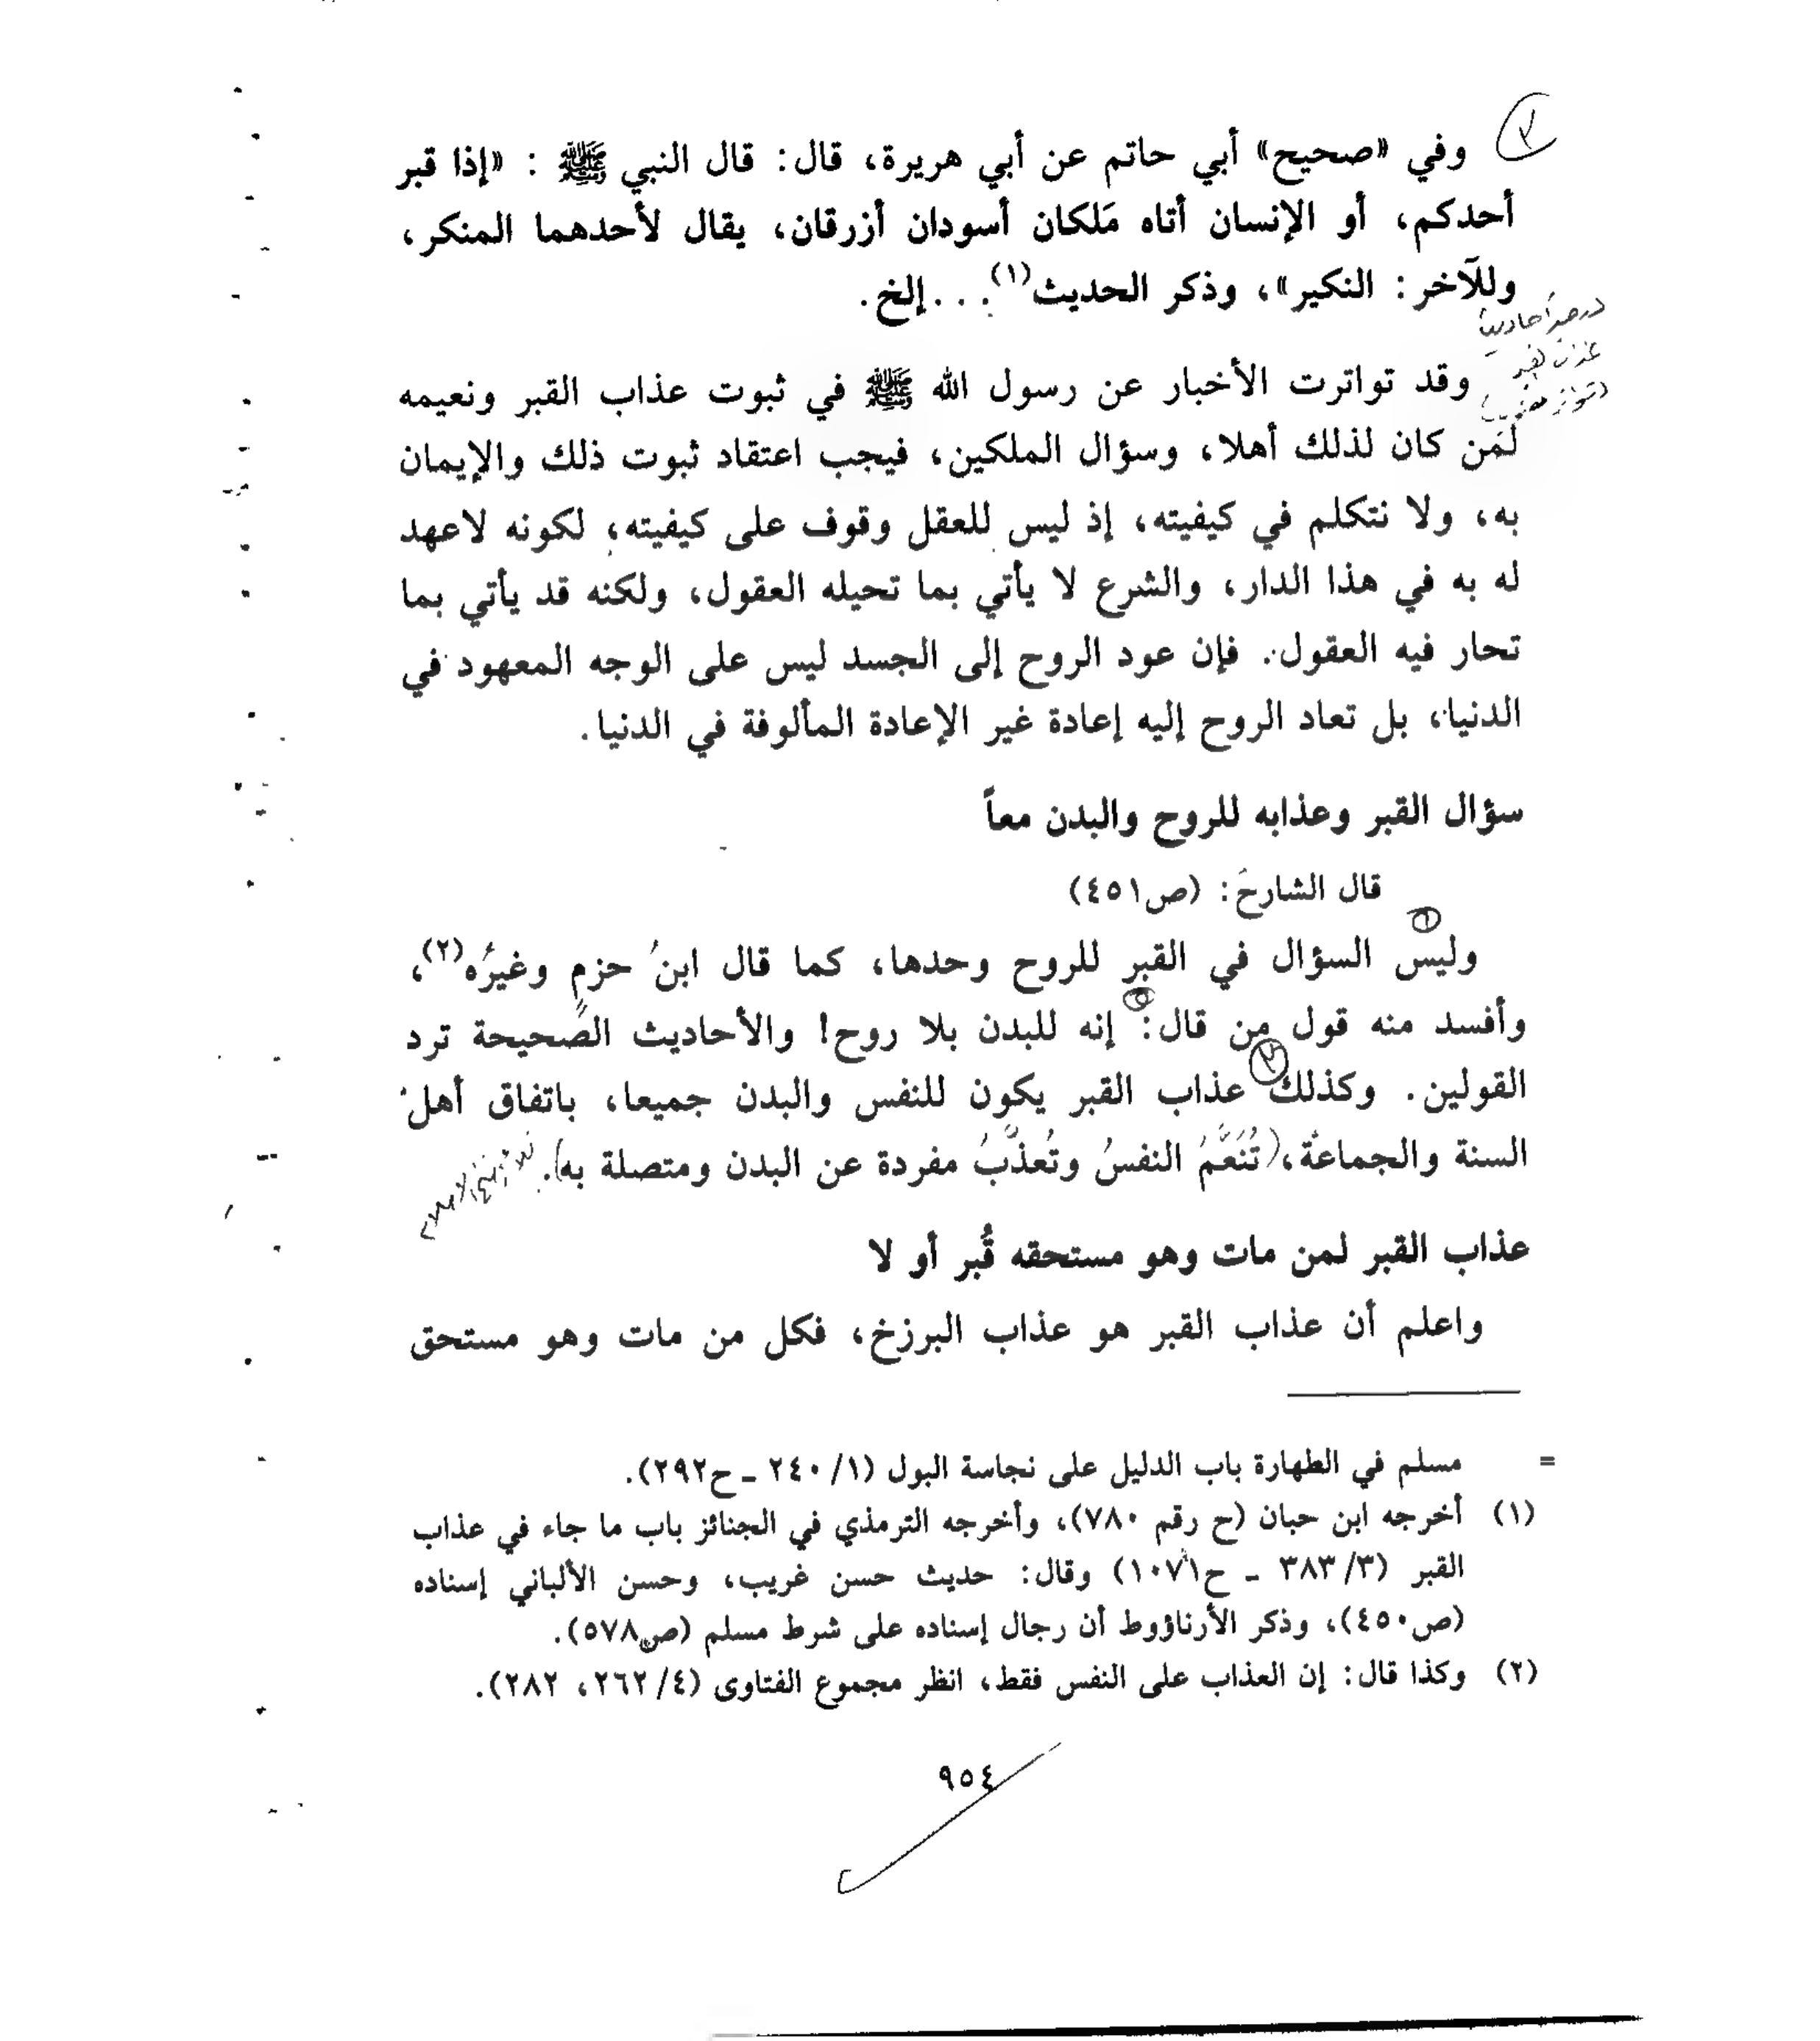 وفي «صحيح» أبي حاتم عن أبي هريرة، قال: قال النبي ﷺ : «إذا قبر
أحدكم، أو الإنسان أتاه مَلكان أسودان أزرقان، يقال لأحدهما المنكر،
وللآخر: النكير»، وذكر الحديث(١). . . إلخ.
وقد تواترت الأخبار عن رسول الله ﷺ في ثبوت عذاب القبر ونعيمه
لمَن كان لذلك أهلا، وسؤال الملكين، فيجب اعتقاد ثبوت ذلك والإيمان
به، ولا نتكلم في كيفيته، إذ ليس للعقل وقوف على كيفيته، لكونه لاعهد
له به في هذا الدار، والشرع لا يأتي بما تحيله العقول، ولكنه قد يأتي بما
تحار فيه العقول. فإن عود الروح إلى الجسد ليس على الوجه المعهود في
الدنيا، بل تعاد الروح إليه إعادة غير الإعادة المألوفة في الدنيا.
سؤال القبر وعذابه للروح والبدن معاً
قال الشارحُ: (ص٤٥١)
وليس السؤال في القبر للروح وحدها، كما قال ابنُ حزمٍ وغيرُه(٢)،
وأفسد منه قول من قال: إنه للبدن بلا روح! والأحاديث الصَّحيحة ترد
القولين. وكذلك عذاب القبر يكون للنفس والبدن جميعا، باتفاق أهل
السنة والجماعة، (تُنَعَّمُ النفسُ وتُعذَّبُ مفردة عن البدن ومتصلة به).
عذاب القبر لمن مات وهو مستحقه قُبر أو لا
واعلم أن عذاب القبر هو عذاب البرزخ، فكل من مات وهو مستحق
= مسلم في الطهارة باب الدليل على نجاسة البول (١/ ٢٤٠ ـ ح٢٩٢).
(١) أخرجه ابن حبان (ح رقم ٧٨٠)، وأخرجه الترمذي في الجنائز باب ما جاء في عذاب
القبر (٣/ ٣٨٣ ـ ح١٠٧١) وقال: حديث حسن غريب، وحسن الألباني إسناده
(ص٤٥٠)، وذكر الأرناؤوط أن رجال إسناده على شرط مسلم (ص٥٧٨).
(٢) وكذا قال: إن العذاب على النفس فقط، انظر مجموع الفتاوى (٤/ ٢٦٢، ٢٨٢).
٩٥٤